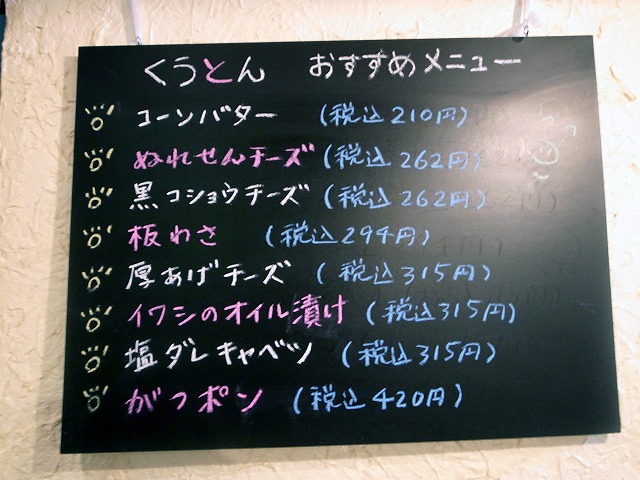 くうとん おすすめメニュー
コーンバター (税込210円)
ぬれせんチーズ(税込262円)
黒コショウチーズ(税込262円)
板わさ (税込294円)
厚あげチーズ (税込315円)
イワシのオイル漬け (税込315円)
塩ダレキャベツ (税込315円)
がつポン (税込420円)